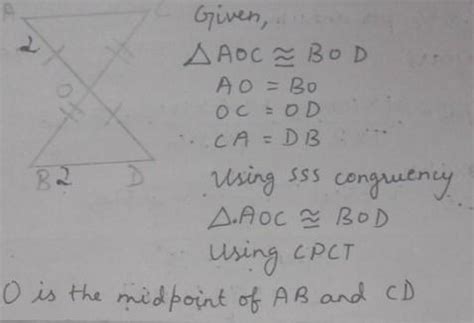 A C
Given,
2
△AOC ≅ BOD
AO = BO
O
OC = OD
CA = DB
B 2 D
Using SSS congruency
△.AOC ≅ BOD
Using CPCT
O is the midpoint of AB and CD